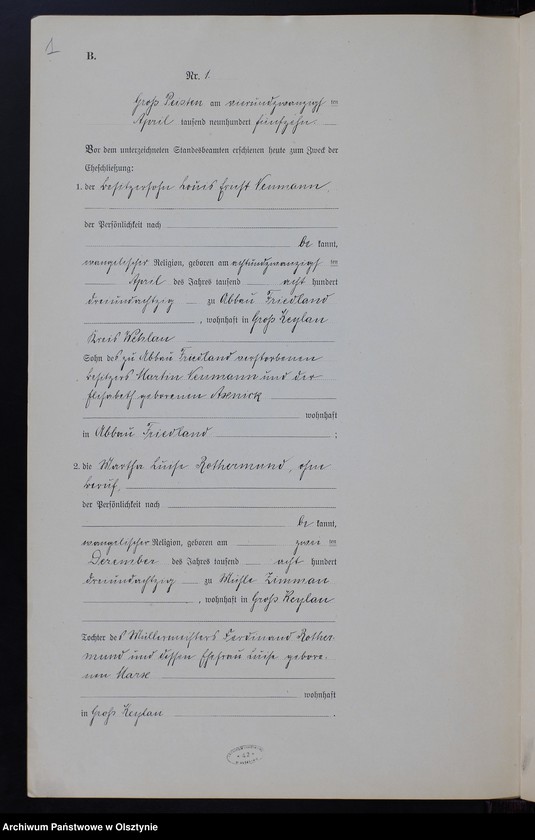 1
B.
Nr. 1.
Groß Peisten am vierundzwanzigsten
April tausend neunhundert fünfzehn.
Vor dem unterzeichneten Standesbeamten erschienen heute zum Zweck der
Eheschließung:
1. der Besitzersohn Louis Ernst Neumann,
der Persönlichkeit nach
be kannt,
evangelischer Religion, geboren am achtundzwanzigsten
April des Jahres tausend acht hundert
dreiundachtzig zu Abbau Friedland
, wohnhaft in Groß Keylau
Kreis Wehlau
Sohn des zu Abbau Friedland verstorbenen
Besitzers Martin Neumann und der
Elisabeth geborenen
wohnhaft
in Abbau Friedland ;
2. die Martha Luise Rothermund, ohne
Beruf,
der Persönlichkeit nach
be kannt,
evangelischer Religion, geboren am zweiten
Dezember des Jahres tausend acht hundert
dreiundachtzig zu Mühle
, wohnhaft in Groß Keylau
Tochter des Müllermeisters Ferdinand Rother-
mund und dessen Ehefrau Luise gebore-
nen
wohnhaft
in Groß Keylau .
Archiwum Państwowe w Olsztynie